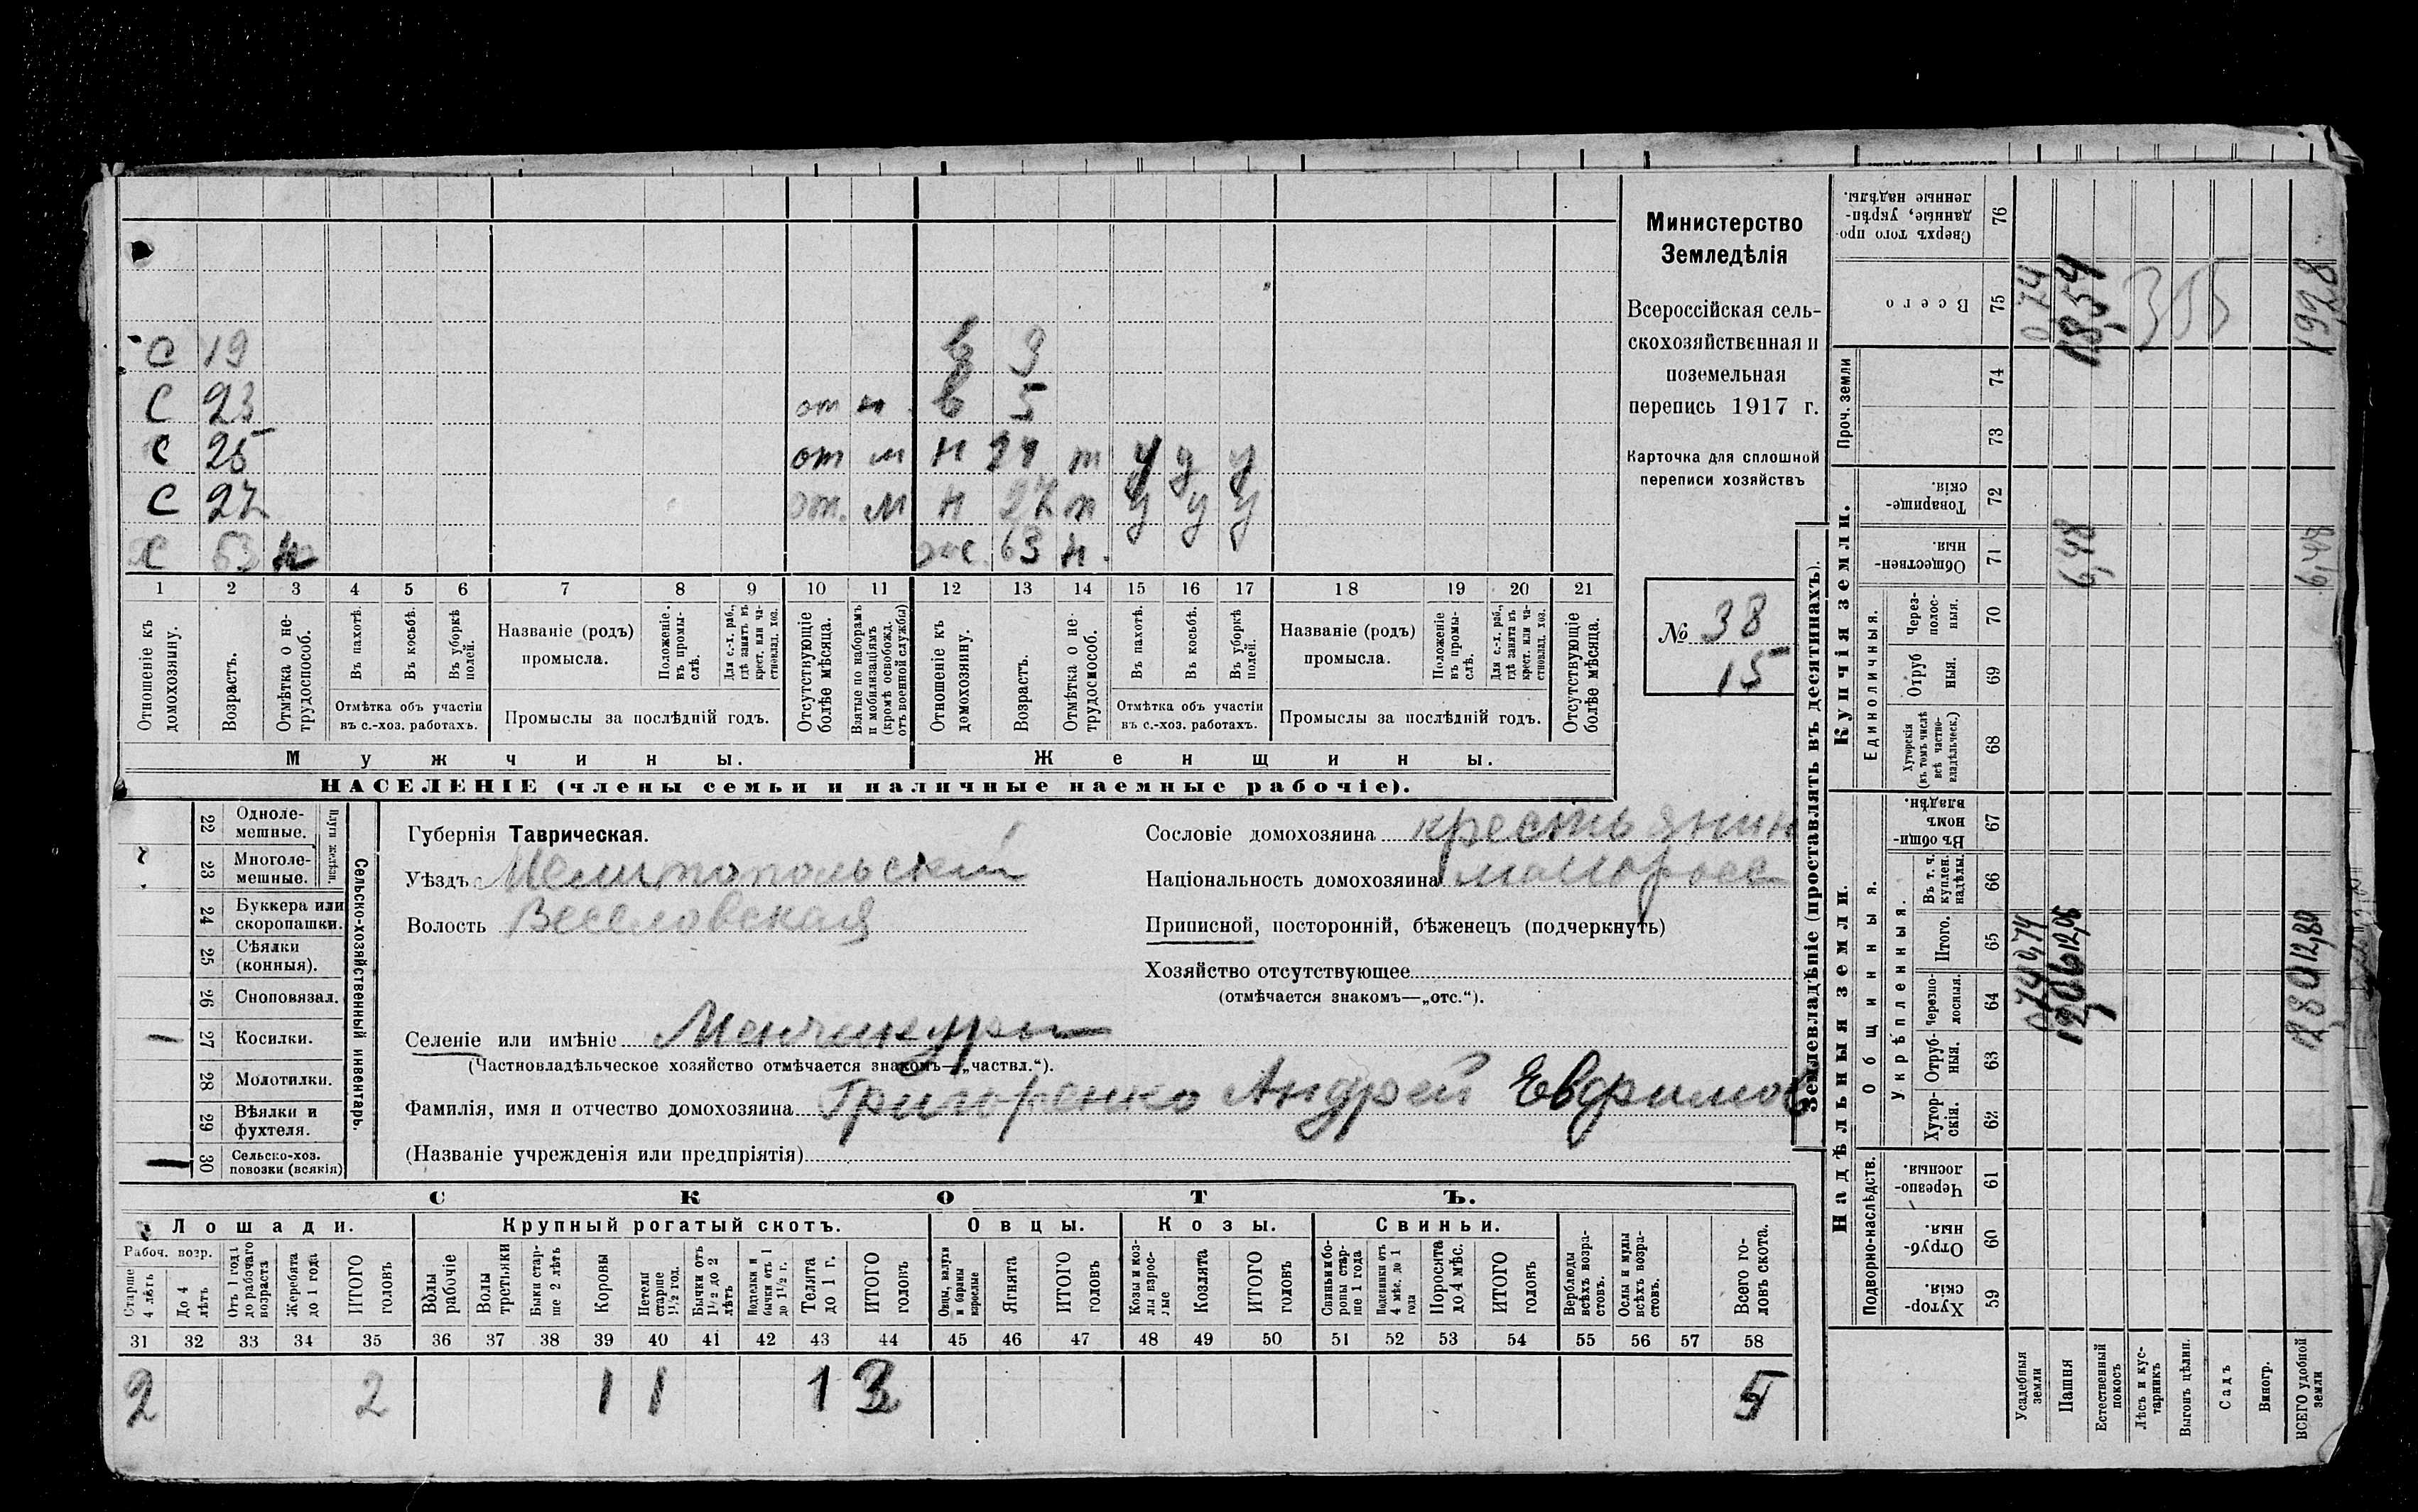 С 19 в 9
С 23 от м. в 5
С 25 от м н 24 т у у у
С 27 от. м н 27 п у у у
Х 63 н ж. 63 н.
1 2 3 4 5 6 7 8 9 10 11 12 13 14 15 16 17 18 19 20 21
Отношеніе къ домохозяину.
Возрастъ.
Отмѣтка о нетрудоспособ.
Въ пахотѣ.
Въ косьбѣ.
Въ уборкѣ полей.
Отмѣтка объ участіи въ с.-хоз. работахъ.
Названіе (родъ) промысла.
Положеніе въ промыслѣ.
Для с.-х. раб., гдѣ занятъ въ крест. или частновлад. хоз.
Промыслы за послѣдній годъ.
Отсутствующіе болѣе мѣсяца.
Взятые по наборамъ и мобилизаціямъ (кромѣ освобожд. отъ военной службы)
Отношеніе къ домохозяину.
Возрастъ.
Отмѣтка о нетрудоспособ.
Въ пахотѣ.
Въ косьбѣ.
Въ уборкѣ полей.
Отмѣтка объ участіи въ с.-хоз. работахъ.
Названіе (родъ) промысла.
Положеніе въ промыслѣ.
Для с.-х. раб., гдѣ занята въ крест. или частновлад. хоз.
Промыслы за послѣдній годъ.
Отсутствующіе болѣе мѣсяца.
Мужчины.
Женщины.
НАСЕЛЕНІЕ (члены семьи и наличные наемные рабочіе).
Министерство
Земледѣлія
Всероссійская сель-
скохозяйственная и
поземельная
перепись 1917 г.
Карточка для сплошной
переписи хозяйствъ
№ 38
15
22 Одноле-мешные.
23 Многоле-мешные.
Плуги желѣзн.
24 Буккера или скоропашки.
25 Сѣялки (конныя).
26 Сноповязал.
27 Косилки.
28 Молотилки.
29 Вѣялки и фухтеля.
30 Сельско-хоз. повозки (всякія)
Сельско-хозяйственный инвентарь.
Губернія Таврическая.
Уѣздъ Мелитопольскій
Волость Веселовская
Сословіе домохозяина крестьянин
Національность домохозяина малоросс
Приписной, посторонній, бѣженецъ (подчеркнуть)
Хозяйство отсутствующее
(отмѣчается знакомъ—„отс.“).
Селеніе или имѣніе Менчикуры
(Частновладѣльческое хозяйство отмѣчается знакомъ—„частвл.“).
Фамилія, имя и отчество домохозяина Григоренко Андрей Евфимов
(Названіе учрежденія или предпріятія)
СКОТЪ.
Лошади.
Крупный рогатый скотъ.
Овцы.
Козы.
Свиньи.
Рабоч. возр.
Старше 4 лѣтъ
До 4 лѣтъ
Отъ 1 года до рабочаго возраста
Жеребята до 1 года
ИТОГО головъ
Волы рабочіе
Волы третьяки
Быки старше 2 лѣтъ
Коровы
Нетели старше 1½ год.
Бычки отъ 1½ до 2 лѣтъ
Подтелки и бычки отъ 1 до 1½ г.
Телята до 1 г.
ИТОГО головъ
Овцы, валухи и бараны взрослые
Ягнята
ИТОГО головъ
Козы и козлы взрослые
Козлята
ИТОГО головъ
Свиньи и боровы старше 1 года
Подсвинки отъ 4 мѣс. до 1 года
Поросята до 4 мѣс.
ИТОГО головъ
Верблюды всѣхъ возрастовъ.
Ослы и мулы всѣхъ возрастовъ.
Всего головъ скота.
31 32 33 34 35 36 37 38 39 40 41 42 43 44 45 46 47 48 49 50 51 52 53 54 55 56 57 58
2 2 1 1 1 3 5
Землевладѣніе (проставлять въ десятинахъ).
Надѣльныя земли.
Купчія земли.
Проч. земли
Подворно-наслѣдств.
Общинныя.
Укрѣпленныя.
Единоличныя.
Хуторскія. 59
Отрубныя. 60
Черезполосныя. 61
Хуторскія. 62
Отрубныя. 63
Черезполосныя. 64
Итого. 65
Въ т. ч. куплен. надѣлы. 66
Въ общинномъ владѣн. 67
Хуторскія (въ томъ числѣ всѣ частновладѣльческ.) 68
Отрубныя. 69
Черезполосныя. 70
Общественныя. 71
Товарищескія. 72
73
74
Всего 75
Сверхъ того проданные, укрѣпленные надѣлы. 76
Усадебныя земли 0,74 0,74 0,74
Пашня 12,06 12,06 6,48 18,54
Естественный покосъ
Лѣсъ и кустарникъ
Выгонъ цѣлин.
Садъ
Виногр.
ВСЕГО удобной земли 12,80 12,80 6,48 19,28
355